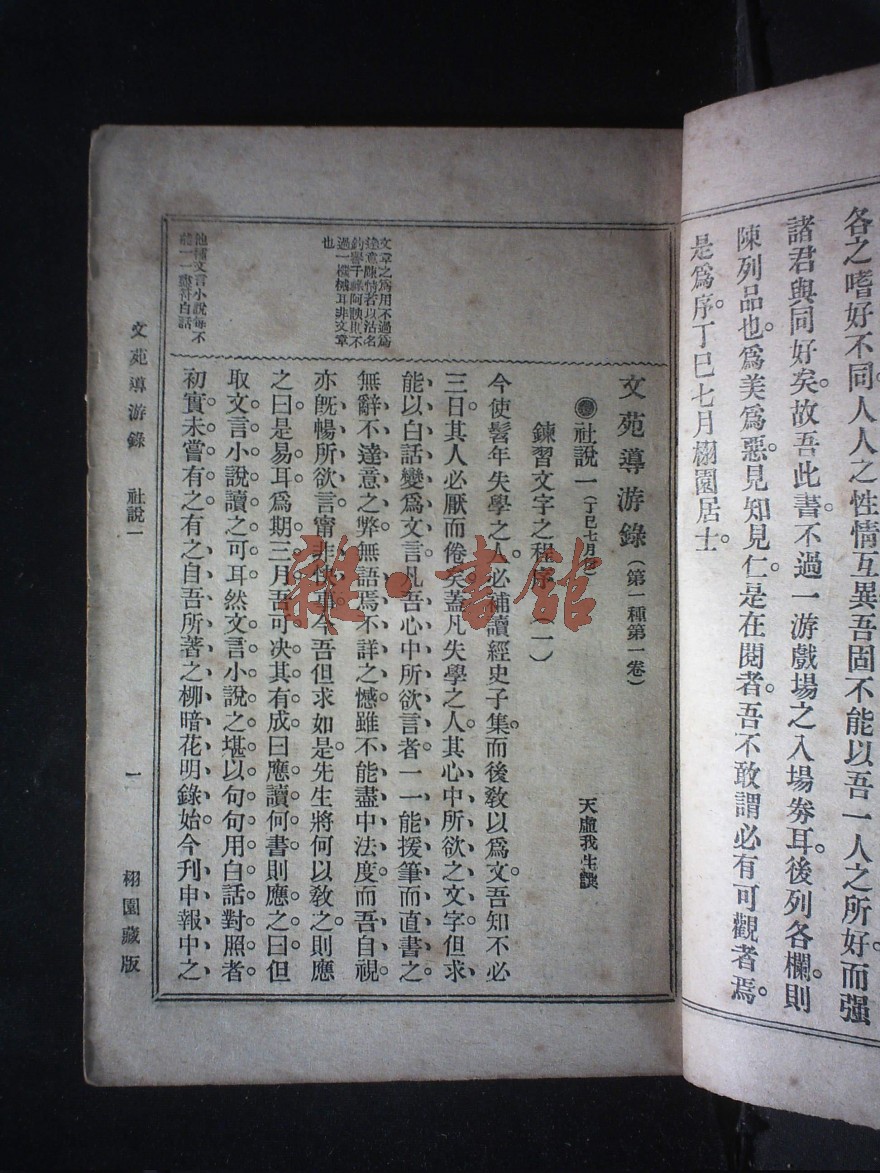 各之嗜好不同。人人之性情互異。吾固不能以吾一人之所好。而强
諸君與同好矣。故吾此書。不過一游戲場之入場券耳。後列各欄。則
陳列品也。爲美爲惡。見知見仁。是在閱者。吾不敢謂必有可觀者焉。
是爲序。丁巳七月栩園居士。
文苑導游錄(第一種第一卷)
社說一(丁巳七月
天虛我生譔
鍊習文字之程序(一)
今使髫年失學之人。必補讀經史子集。而後敎以爲文。吾知不必
三日。其人必厭而倦矣。蓋凡失學之人。其心中所欲之文字。但求
能以白話變爲文言。凡吾心中所欲言者。一一能援筆而直書之
無辭不達意之弊。無語焉不詳之憾。雖不能盡中法度。而吾自視
亦旣暢所欲言。甯非快事。今吾但求如是。先生將何以敎之。則應
之曰。是易耳。爲期三月。吾可决其有成。曰應讀何書。則應之曰。但
取文言小說讀之可耳。然文言小說之堪以句句用白話對照者。
初實未嘗有之。有之。自吾所著之柳暗花明錄始。今刋申報中之
文章之爲用不過爲
達意陳情者以沽名
釣譽干祿阿諛則不
過一機械耳非文章
也
他種文言小說每不
能一一盡符白話
文苑導游錄 社說一 一 栩園藏版
雜·書館